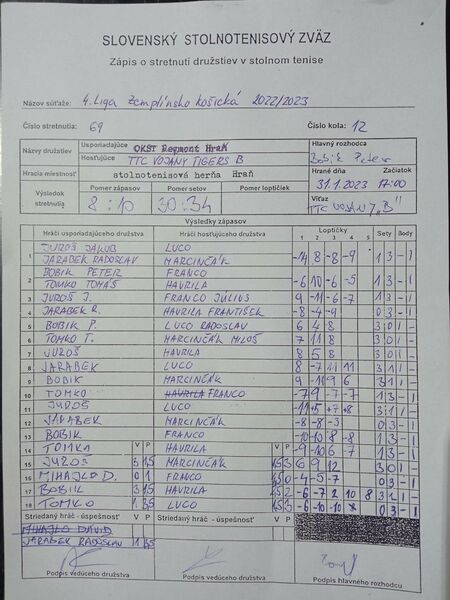 SLOVENSKÝ STOLNOTENISOVÝ ZVÄZ
Zápis o stretnutí družstiev v stolnom tenise
Názov súťaže: 4. Liga Zemplínsko košická 2022/2023
Číslo stretnutia: 69 Číslo kola: 12
Názvy družstiev Usporiadajúce OKST Regmont Hraň Hlavný rozhodca
Hosťujúce TTC VOJANY TIGERS B Bobik Peter
Hracia miestnosť stolnotenisová herňa Hraň Hrané dňa Začiatok
31.1.2023 17:00
Výsledok stretnutia Pomer zápasov Pomer setov Pomer loptičiek Víťaz
8:10 30:34 TTC VOJANY T. "B"
Výsledky zápasov
Hráči usporiadajúceho družstva Hráči hosťujúceho družstva Loptičky Sety Body
1 2 3 4 5
1 JUROŠ JAKUB LUCO
JARABEK RADOSLAV MARCINČÁK -14 8 -8 -9 1 3 - 1
2 BOBIK PETER FRANCO
TOMKO TOMÁŠ HAVRILA -6 10 -6 -5 1 3 - 1
3 JUROŠ J. FRANCO JÚLIUS 9 -11 -6 -7 1 3 - 1
4 JARABEK R. HAVRILA FRANTIŠEK -8 -4 -9 0 3 - 1
5 BOBIK P. LUCO RADOSLAV 6 4 8 3 0 1 -
6 TOMKO T. MARCINČÁK MILOŠ 7 11 8 3 0 1 -
7 JUROŠ HAVRILA 8 5 8 3 0 1 -
8 JARABEK LUCO
9 BOBIK MARCINČÁK
10 TOMKO HAVRILA FRANCO
11 JUROŠ LUCO
12 JARABEK MARCINČÁK -8 -8 -3 0 3 - 1
13 BOBIK FRANCO -10 -10 8 -8 1 3 - 1
14 TOMKA V P HAVRILA V P -9 -10 6 -7 1 3 - 1
15 JUROŠ MARCINČÁK 6 9 12 3 0 1 -
16 MIHAJLO D. 0 1 FRANCO -4 -5 -7 0 3 - 1
17 BOBIK HAVRILA -6 -7 2 10 8 3 2 1 -
18 TOMKO LUCO
Striedaný hráč - úspešnosť V P Striedaný hráč - úspešnosť V P
MIHAJLO DAVID
JARABEK RADOSLAV
Podpis vedúceho družstva Podpis vedúceho družstva Podpis hlavného rozhodcu